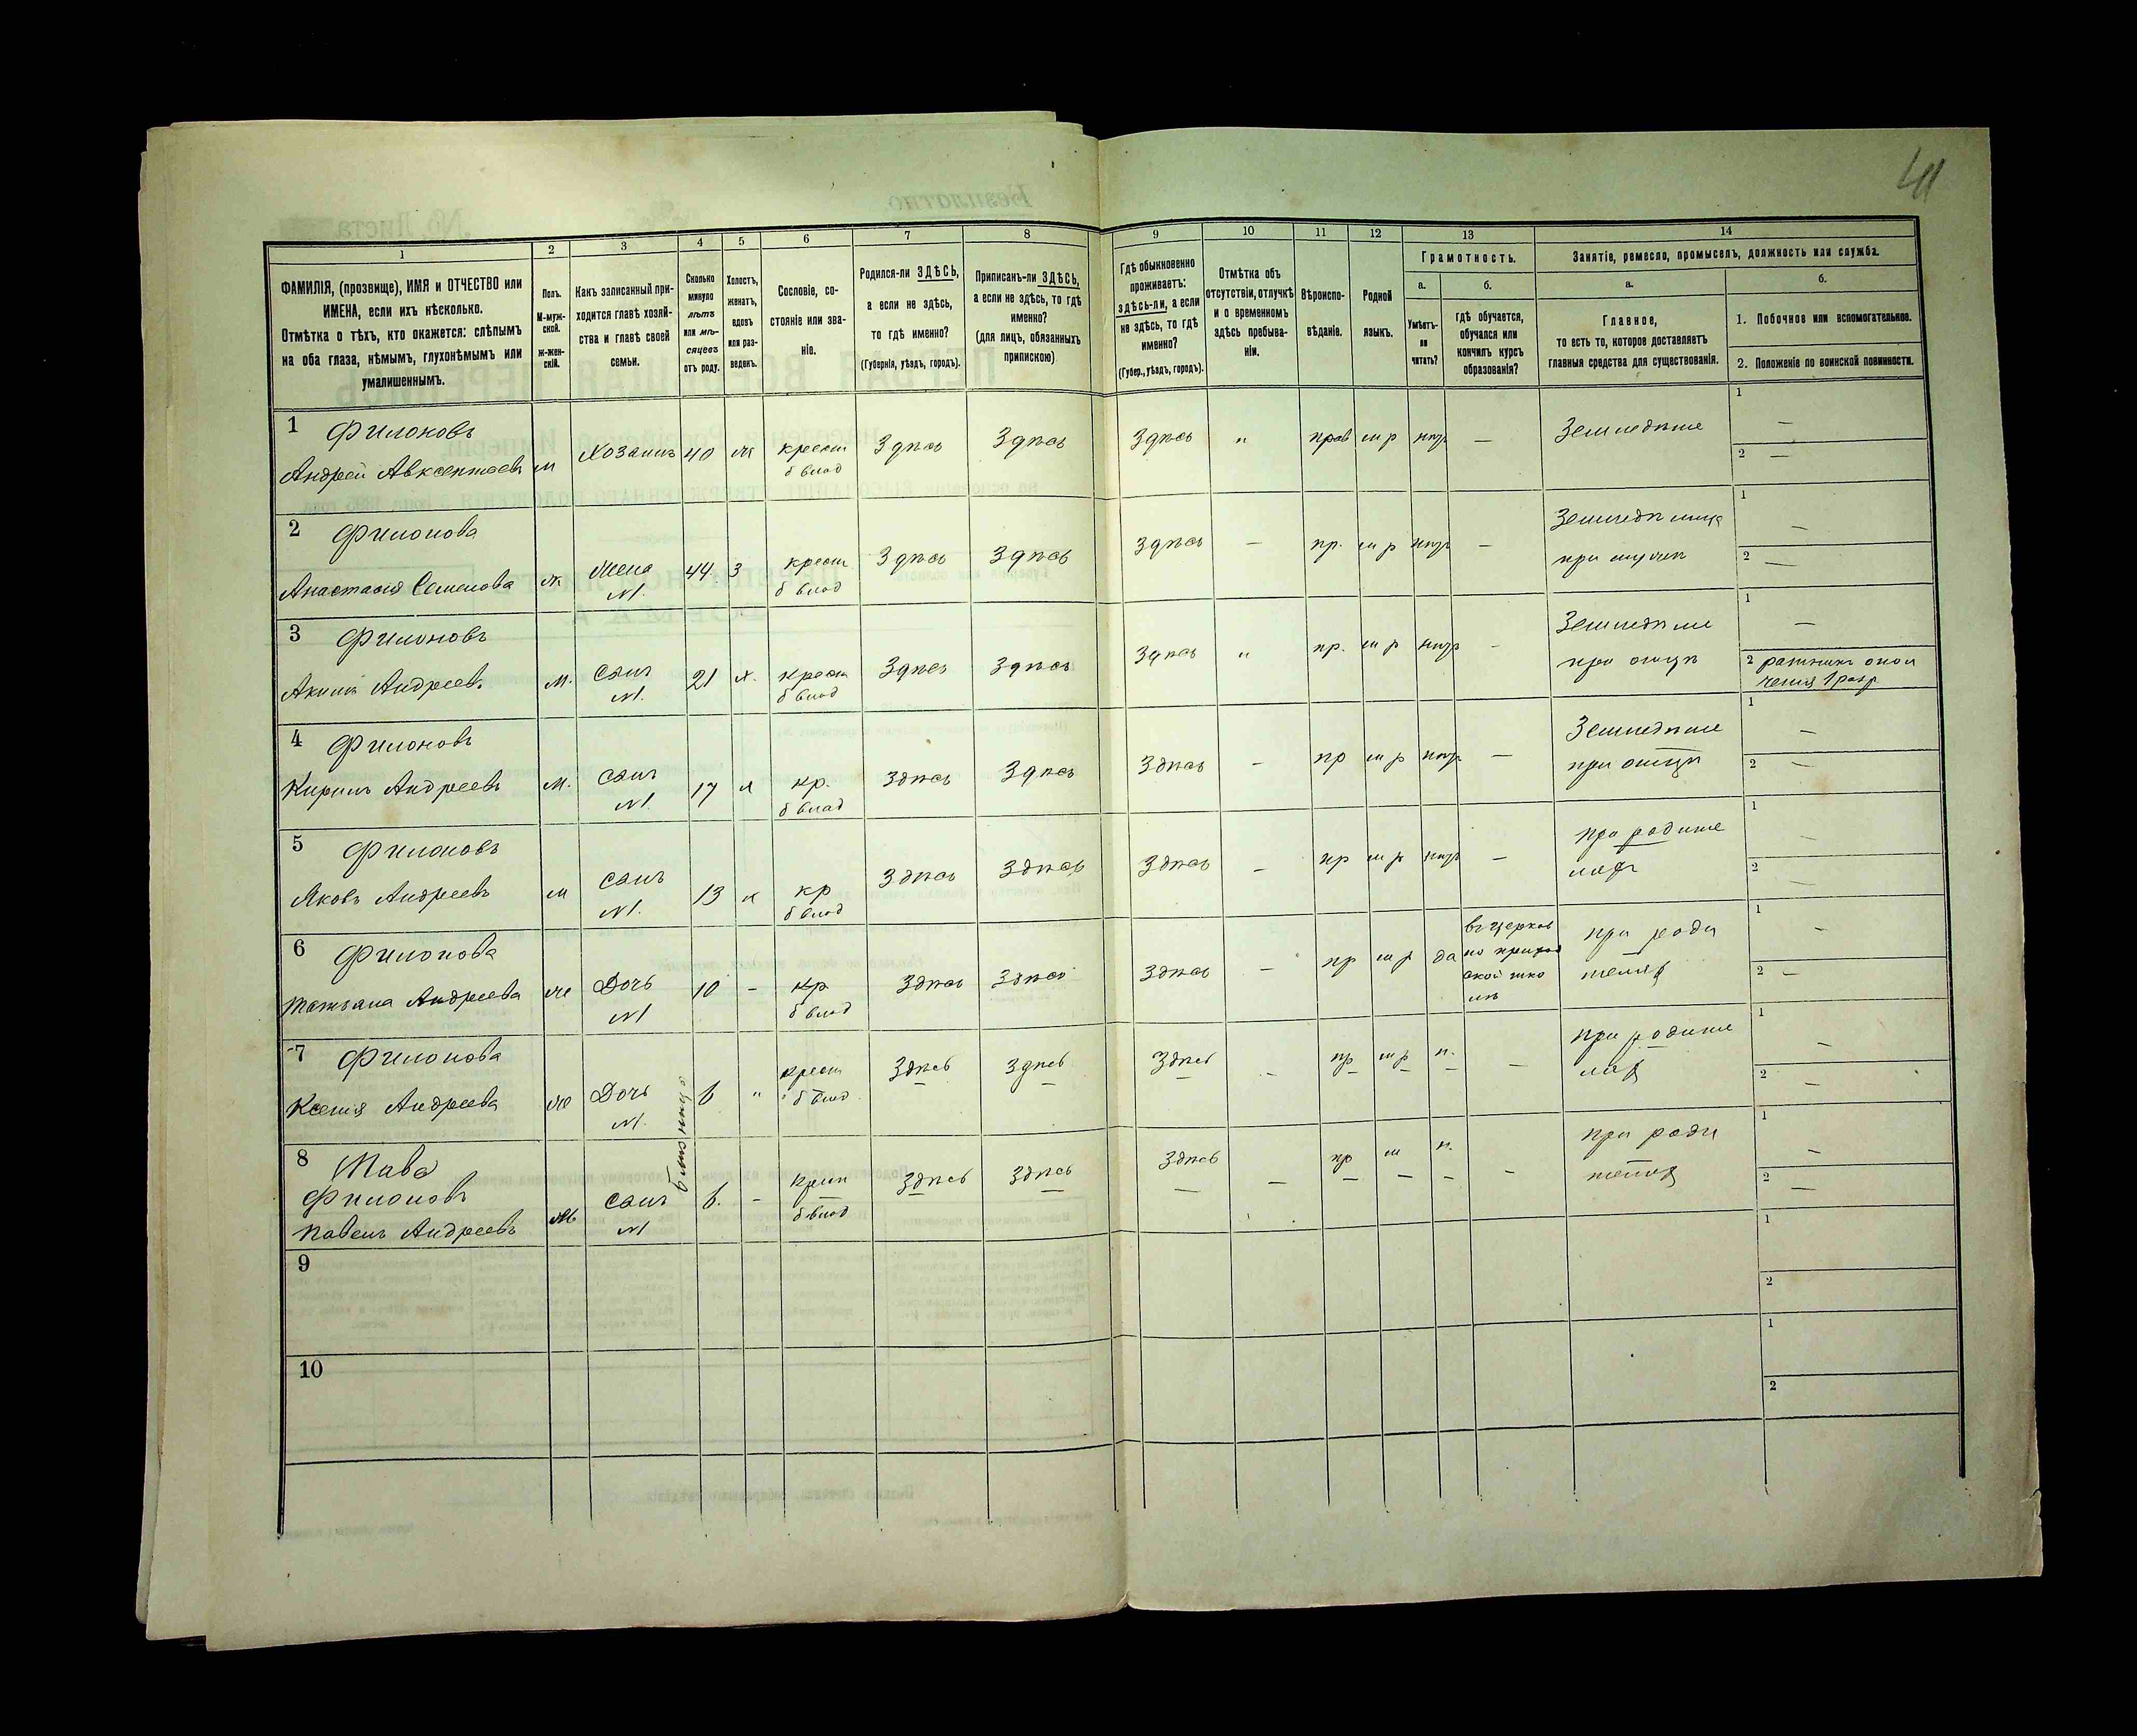 41
1
2
3
4
5
6
7
8
9
10
11
12
13
14
ФАМИЛІЯ, (прозвище), ИМЯ и ОТЧЕСТВО или
ИМЕНА, если ихъ нѣсколько.
Отмѣтка о тѣхъ, кто окажется: слѣпымъ
на оба глаза, нѣмымъ, глухонѣмымъ или
умалишеннымъ.
Полъ.
М-муж-
ской.
ж-жен-
скій.
Какъ записанный при-
ходится главѣ хозяй-
ства и главѣ своей
семьи.
Сколько
минуло
лѣтъ
или мѣ-
сяцевъ
отъ роду.
Холостъ,
женатъ,
вдовъ
или раз-
веденъ.
Сословіе, со-
стояніе или зва-
ніе.
Родился-ли ЗДѢСЬ,
а если не здѣсь,
то гдѣ именно?
(Губернія, уѣздъ, городъ).
Приписанъ-ли ЗДѢСЬ,
а если не здѣсь, то гдѣ
именно?
(для лицъ, обязанныхъ
припискою)
Гдѣ обыкновенно
проживаетъ:
здѣсь-ли, а если
не здѣсь, то гдѣ
именно?
(Губер., уѣздъ, городъ).
Отмѣтка объ
отсутствіи, отлучкѣ
и о временномъ
здѣсь пребыва-
ніи.
Вѣроиспо-
вѣданіе.
Родной
языкъ.
Грамотность.
а.
Умѣетъ-
ли
читать?
б.
гдѣ обучается,
обучался или
кончилъ курсъ
образованія?
Занятіе, ремесло, промыселъ, должность или служба.
а.
Главное,
то есть то, которое доставляетъ
главныя средства для существованія.
б.
1. Побочное или вспомогательное.
2. Положеніе по воинской повинности.
1 Филоновъ
Андрей Авксентьевъ м Хозяинъ 40 ж крест Здѣсь Здѣсь Здѣсь " прав м р нѣтъ — Земледѣлие 1 —
б влад 2 —
2 Филонова
Анастасия Семенова ж Жена 44 З крест Здѣсь Здѣсь Здѣсь — пр. м р нѣтъ — Земледѣлица 1 —
N1. б влад при мужѣ 2 —
3 Филоновъ
Андреев. м. Сынъ 21 х. крест Здѣсь Здѣсь Здѣсь " пр. м р нѣтъ - Земледѣлие 1 —
N1. б влад при отцѣ 2 ратникъ опол
чения 1 разр
4 Филоновъ
Кирилъ Андреевъ м. Сынъ 17 х кр. Здѣсь Здѣсь Здѣсь - пр м р нѣтъ — Земледѣлие 1 —
N1. б влад при отцѣ 2 —
5 Филоновъ
Яковъ Андреевъ м Сынъ 13 х кр Здѣсь Здѣсь Здѣсь - пр м р нѣтъ — при родите 1 —
N1. б влад ляхъ 2 —
6 Филонова
Татьяна Андреева ж Дочь 10 - кр Здѣсь Здѣсь Здѣсь — пр м р да въ церков при роди 1 —
N1 б влад но приход теляхъ 2 —
ской шко
лѣ
7 Филонова
Ксения Андреева ж Дочь 6 " крест Здѣсь Здѣсь Здѣсь - пр м р н. — при родите 1 —
N1. б влад ляхъ 2 —
близнецы
8
Филоновъ
Павелъ Андреевъ м Сынъ 6. - Здѣсь Здѣсь Здѣсь — пр м н. - при роди 1 —
N1 б влад теляхъ 2 —
9
1
2
10
1
2